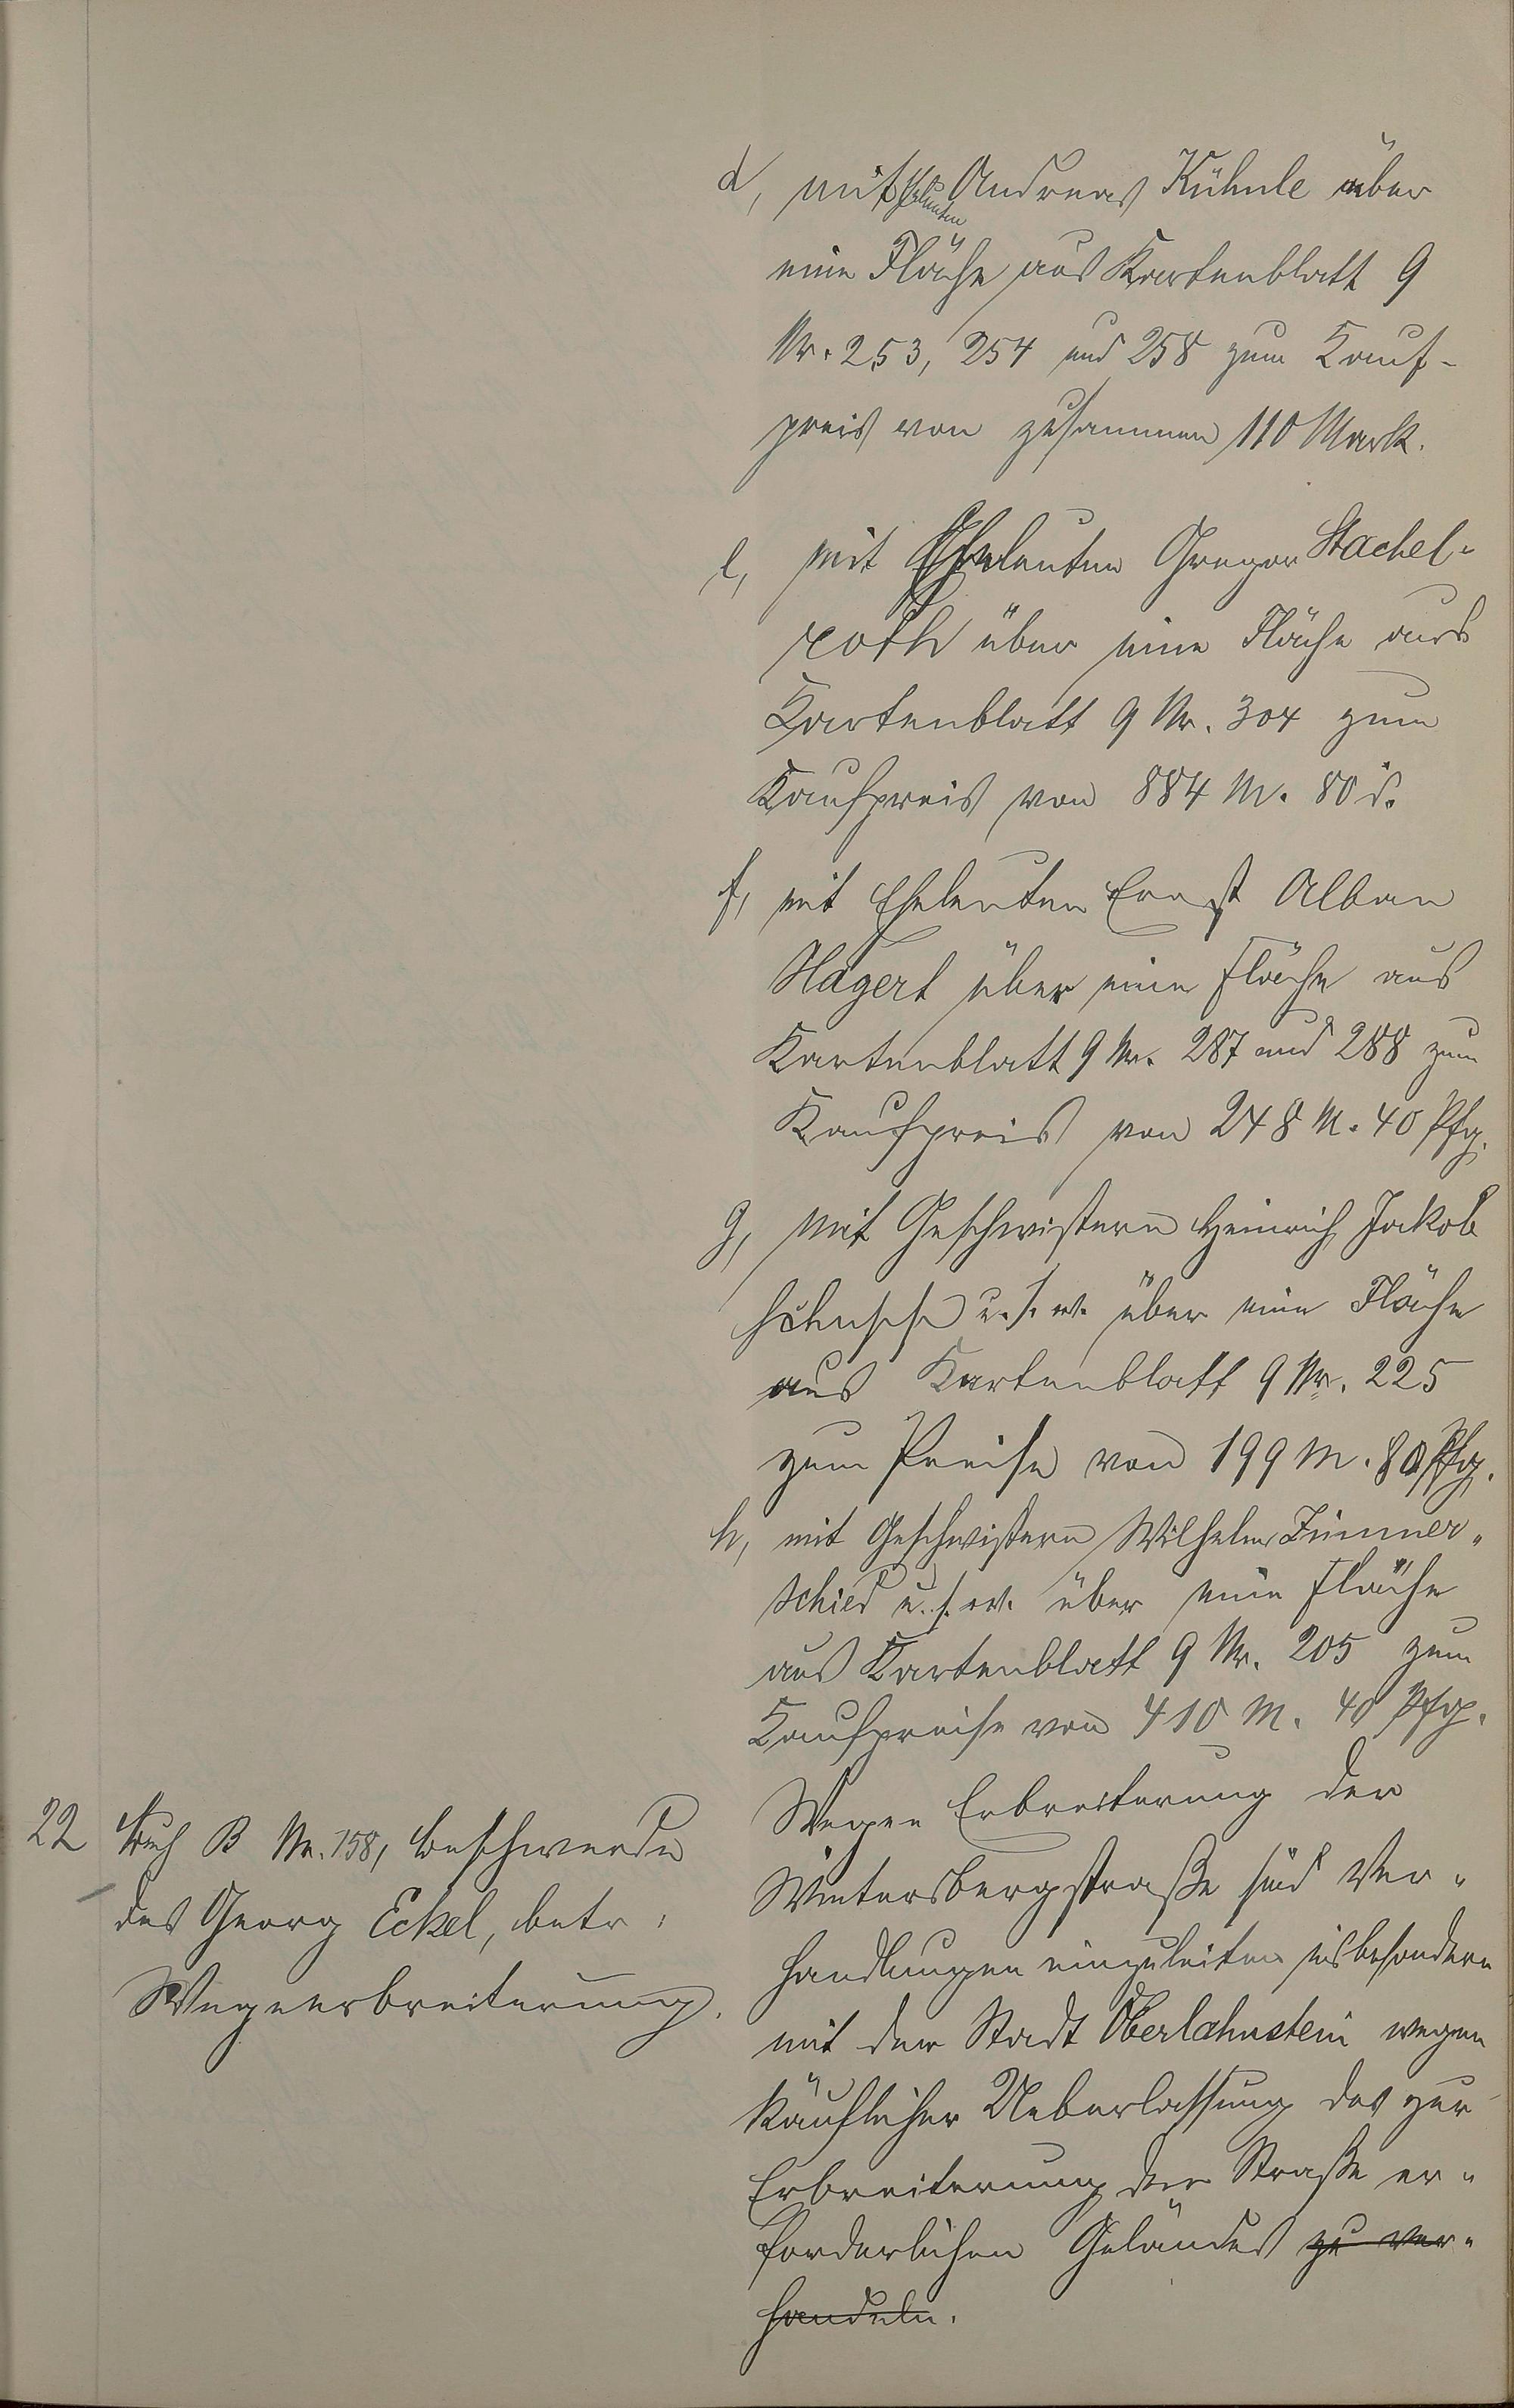 d, mit Eheleuten Andreas Kühnle über
eine Fläche aus Kartenblatt 9
Nr. 253, 254 und 258 zum Kauf-
preis von zusammen 110 Mark.
e, mit Eheleuten Gregor Stachel-
roth über eine Fläche aus
Kartenblatt 9 Nr. 304 zum
Kaufpreis von 884 M. 80 d.
f, mit Eheleuten Ernst Alban
Hagert über eine Fläche aus
Kartenblatt 9 Nr. 287 und 288 zum
Kaufpreis von 248 M. 40 Pfg.
g, mit Geschwistern Heinrich Jakob
u.s.w. über eine Fläche
aus Kartenblatt 9 Nr. 225
zum Preise von 199 M. 80 Pfg.
h, mit Geschwistern Wilhelm Zimmer-
schied u.s.w. über eine Fläche
aus Kartenblatt 9 Nr. 205 zum
Kaufpreise von 410 M. 40 Pfg.
22 B Nr. 158, Beschwerde
des Georg Eckel, betr.
Wegeerbreiterung.
Wegen Erbreiterung der
Wintersbergstraße sind Ver-
handlungen einzuleiten insbesondere
mit der Stadt Oberlahnstein wegen
käuflicher Ueberlassung des zur
Erbreiterung der Straße er-
forderlichen Geländes zu ver-
handeln.